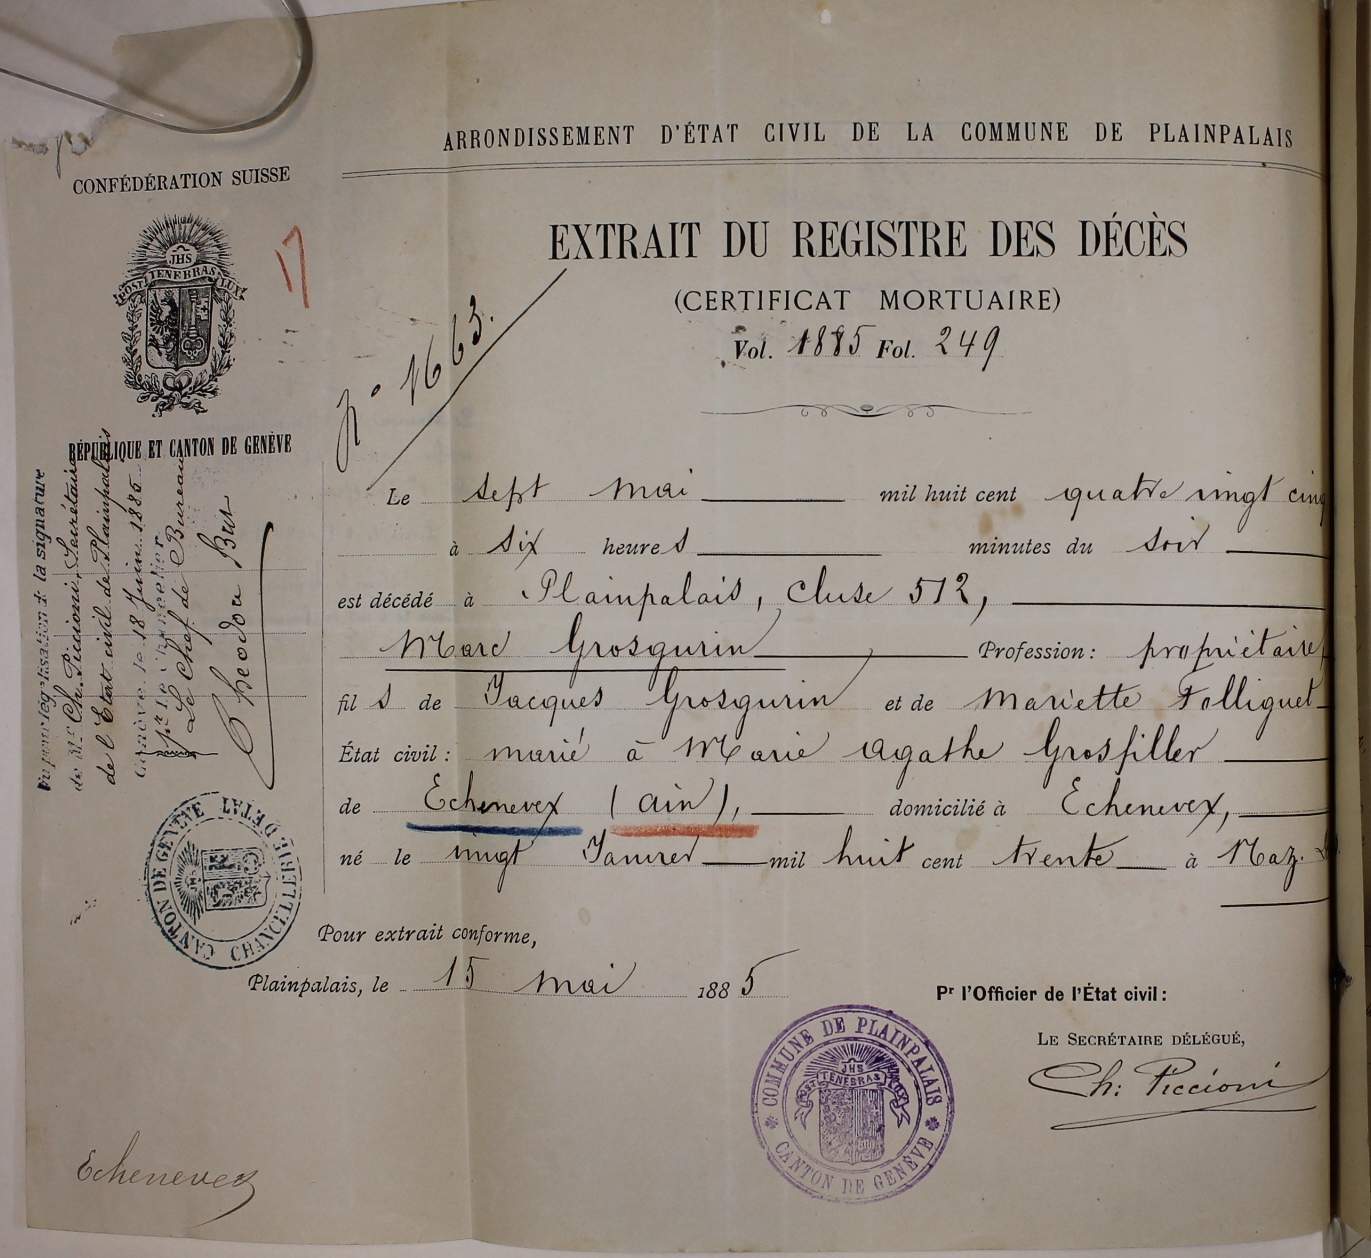 ARRONDISSEMENT D'ÉTAT CIVIL DE LA COMMUNE DE PLAINPALAIS
CONFÉDÉRATION SUISSE
JHS
POST TENEBRAS LUX
RÉPUBLIQUE ET CANTON DE GENÈVE
17
EXTRAIT DU REGISTRE DES DÉCÈS
(CERTIFICAT MORTUAIRE)
Vol. 1885 Fol. 249
No 1663.
Le sept mai mil huit cent quatre vingt cinq
à six heures minutes du soir
est décédé à Plainpalais, Cluse 512,
Marc Grosgurin Profession: propriétaire,
fils de Jacques Grosgurin et de Mariette Folliguet
État civil: marié à Marie Agathe Grosfiller
de Echenevex (Ain), domicilié à Echenevex,
né le vingt Janvier mil huit cent trente à Maz.
Pour extrait conforme,
Plainpalais, le 15 mai 1885
Pr l'Officier de l'État civil:
LE SECRÉTAIRE DÉLÉGUÉ,
Ch: Piccioni
Vu pour légalisation de la signature
de Mr Ch. Piccioni, Secrétaire
de l'Etat civil de Plainpalais
Genève le 18 Juin 1885
pr le Chancelier
Le Chef de Bureau
Theodore Bret
CANTON DE GENÈVE CHANCELLERIE D'ETAT
COMMUNE DE PLAINPALAIS
JHS
POST TENEBRAS LUX
CANTON DE GENÈVE
Echenevex